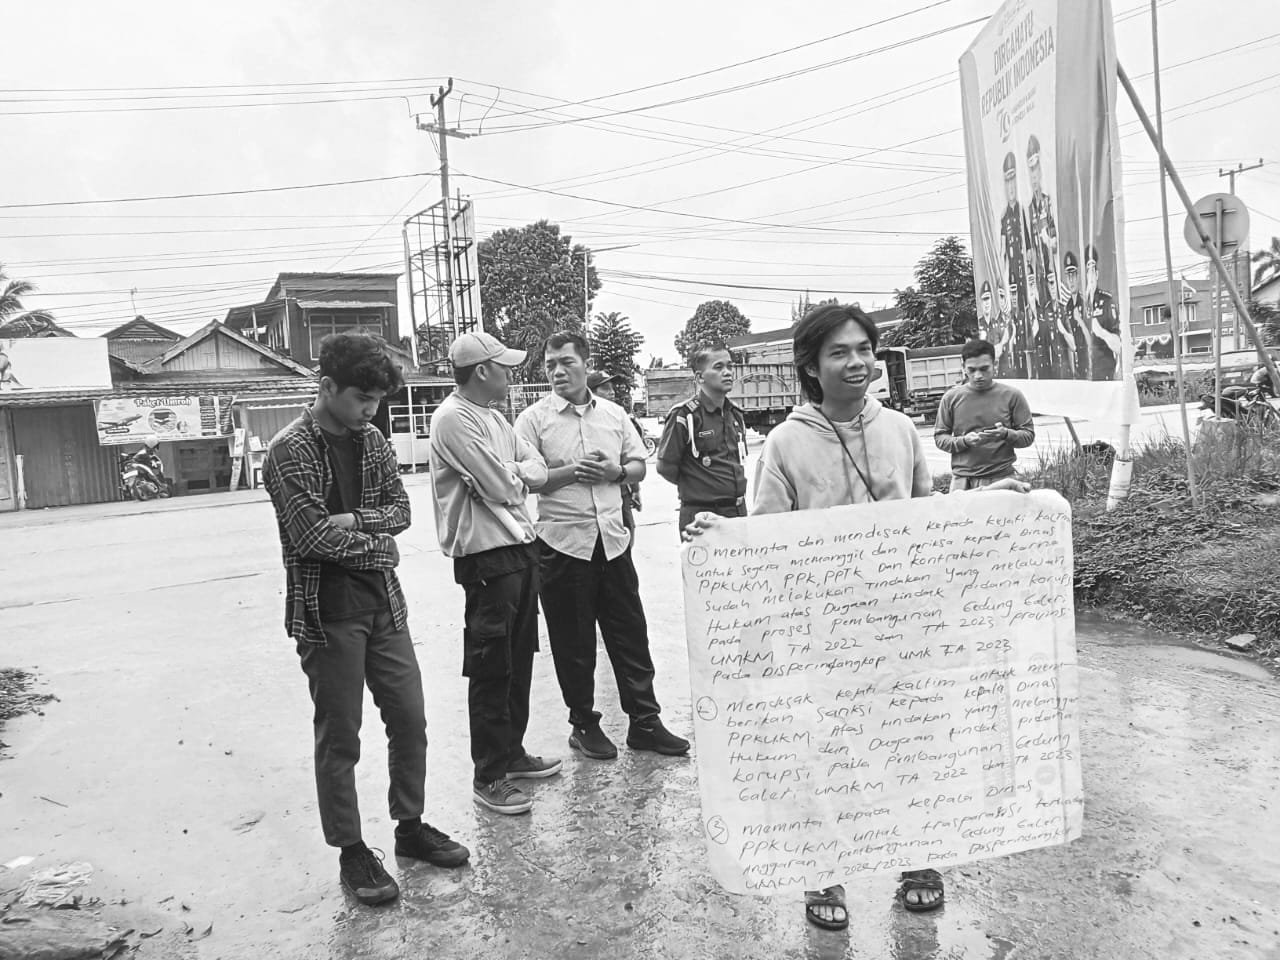 DIRGAHAYU
REPUBLIK INDONESIA
Paket Umroh
① meminta dan mendesak kepada kejati kaltim
untuk segera memanggil dan periksa kepada Dinas
PPKUKM, PPK, PPTK dan kontraktor karena
sudah melakukan tindakan yang melawan
Hukum atas Dugaan tindak pidana korupsi
pada proses pembangunan Gedung Galeri
UMKM TA 2022 dan TA 2023 provinsi
pada Disperindangkop UMK TA 2023
② mendesak kejati kaltim untuk mem-
berikan sanksi kepada kepala Dinas
PPKUKM. Atas tindakan yang melanggar
Hukum dan Dugaan tindak pidana
korupsi pada pembangunan Gedung
Galeri UMKM TA 2022 dan TA 2023
③ meminta kepada kepala Dinas
PPKUKM untuk trasparasi terhadap
anggaran pembangunan Gedung Galeri
UMKM TA 2022/2023 pada Disperindangkop